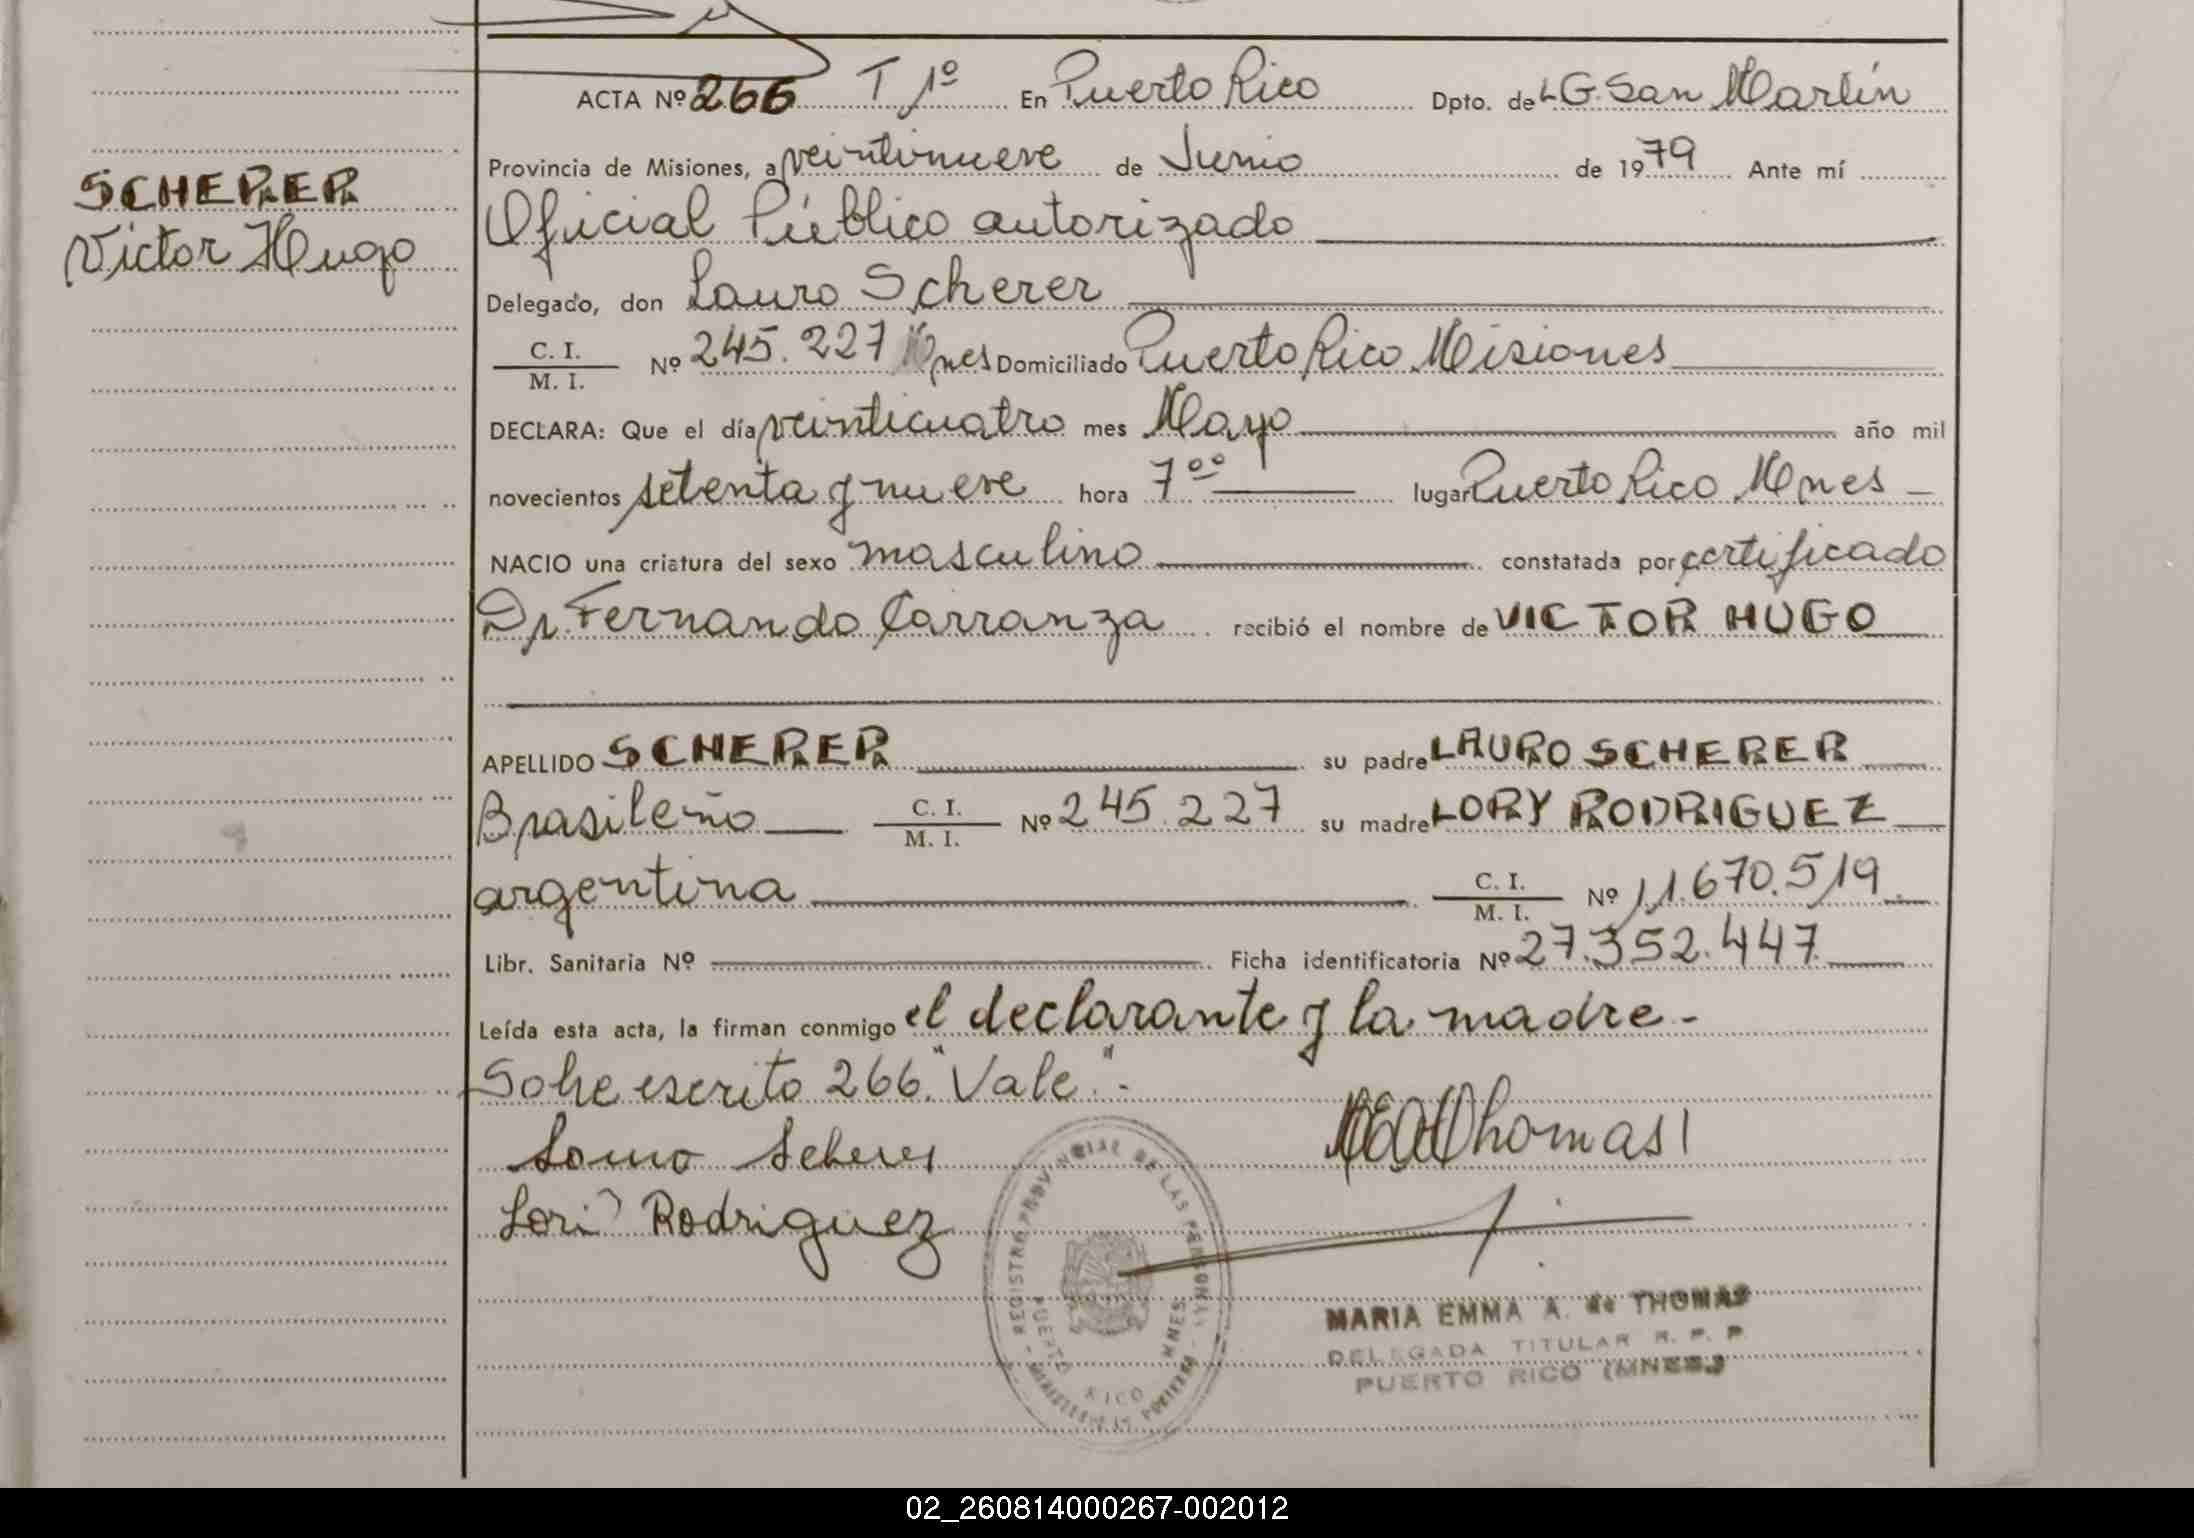 ACTA Nº 266 T 1º En Puerto Rico Dpto. de L G. San Martín
Provincia de Misiones, a veintinueve de Junio de 1979 Ante mí
SCHERER
Victor Hugo
Oficial Público autorizado
Delegado, don Lauro Scherer
C. I.
M. I.
Nº 245.227 Mnes Domiciliado Puerto Rico Misiones
DECLARA: Que el día veinticuatro mes Mayo año mil
novecientos setenta y nueve hora 7⁰⁰ lugar Puerto Rico Mnes
NACIO una criatura del sexo masculino constatada por certificado
Dr. Fernando Carranza recibió el nombre de VICTOR HUGO
APELLIDO SCHERER su padre LAURO SCHERER
Brasileño C. I. M. I. Nº 245.227 su madre LORY RODRIGUEZ
argentina C. I. M. I. Nº 11.670.519
Libr. Sanitaria Nº Ficha identificatoria Nº 27.352.447
Leída esta acta, la firman conmigo el declarante y la madre.-
Sobre escrito 266. "Vale".-
Lauro Scherer
Thomas
Lori Rodriguez
REGISTRO PROVINCIAL DE LAS PERSONAS
PUERTO RICO MNES.
MARIA EMMA A. de THOMAS
DELEGADA TITULAR R. P. P.
PUERTO RICO (MNES.)
02_260814000267-002012